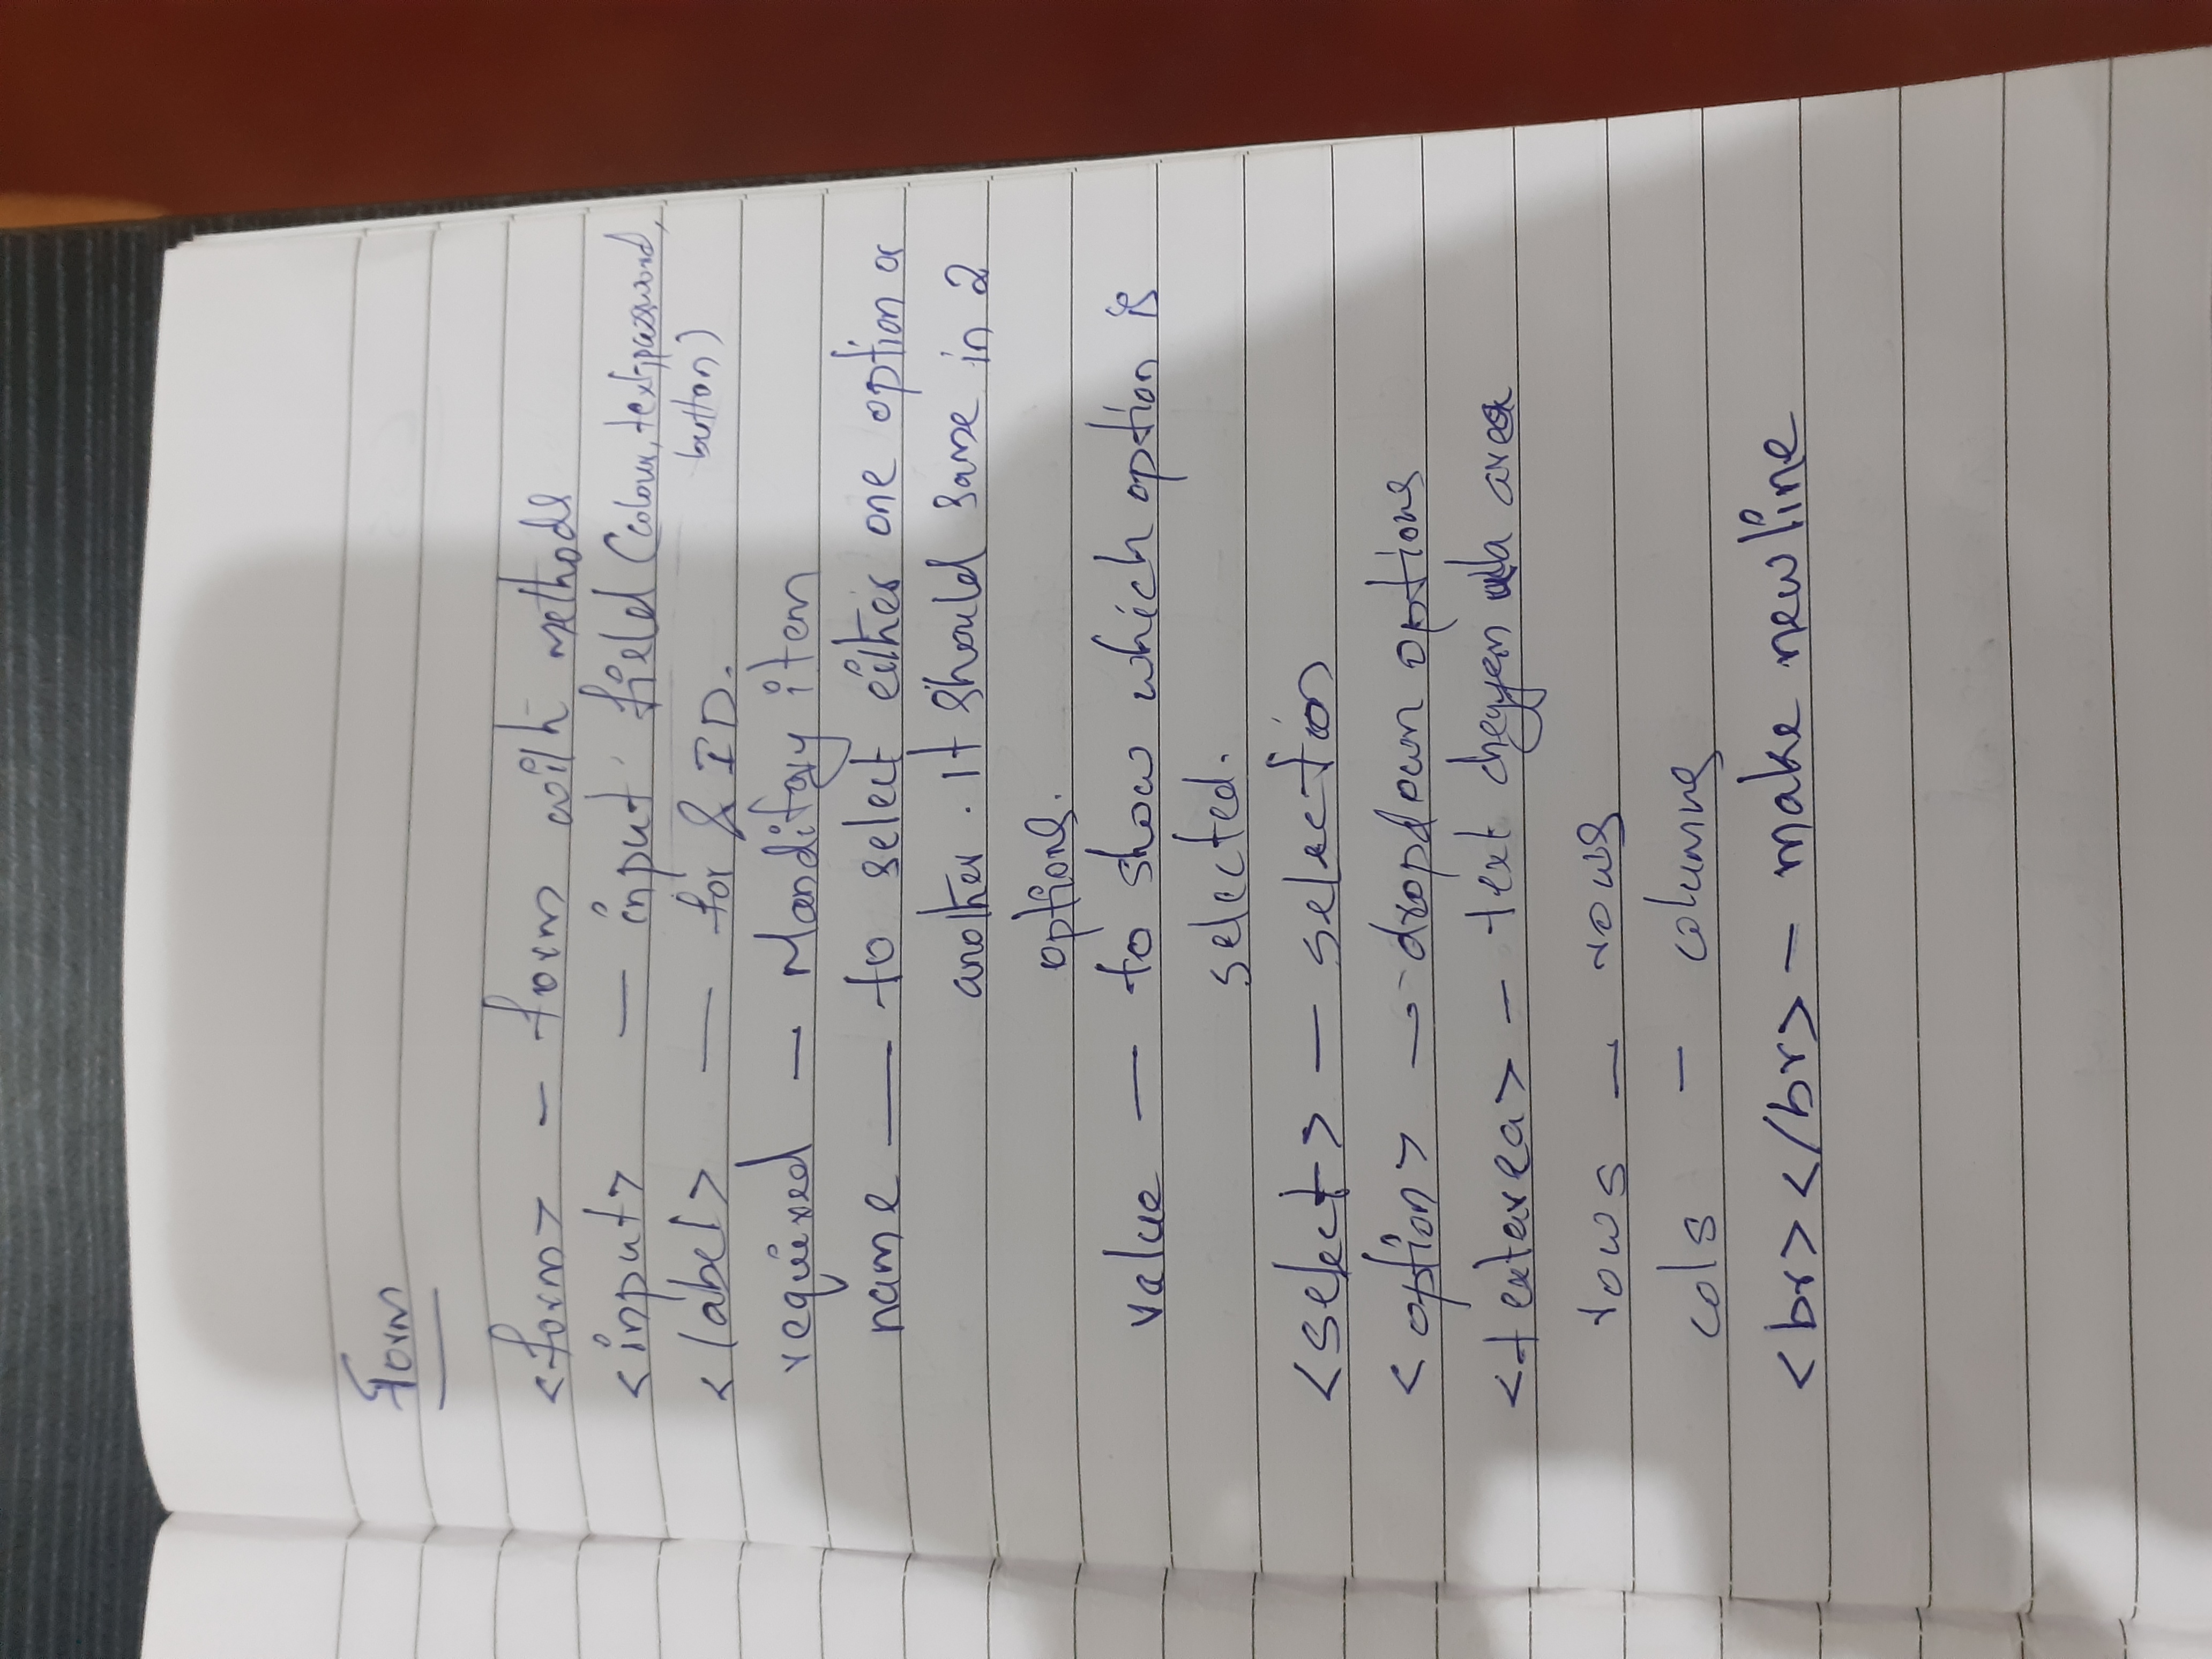 Form
<form> - form with methods
<input> — input field (colour, text, password,
button)
<label> — for & ID.
required — Manditory item
name — to select either one option or
another. It should same in 2
options.
value — to show which option is
selected.
<select> — selection
<option> — dropdown options
<textarea> - text area
rows - rows
cols - columns
<br></br> - make newline